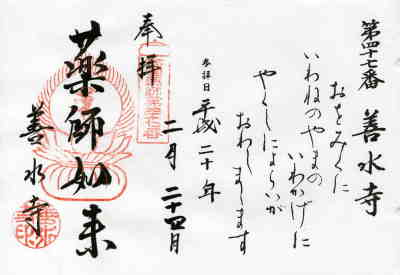 第四十七番 善水寺
おをみくに
いわねのやまの
いわかげに
やくしによらいが
おわしまします
平成二十年
二月二十四日
奉拝
薬師如来
善水寺